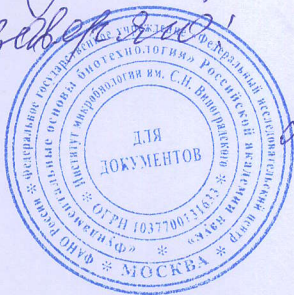 ФАНО России * Федеральное государственное учреждение «Федеральный исследовательский центр
* МОСКВА *
«Фундаментальные основы биотехнологии» Российской академии наук»
Институт микробиологии им. С.Н. Виноградского
* ОГРН
ДЛЯ
ДОКУМЕНТОВ